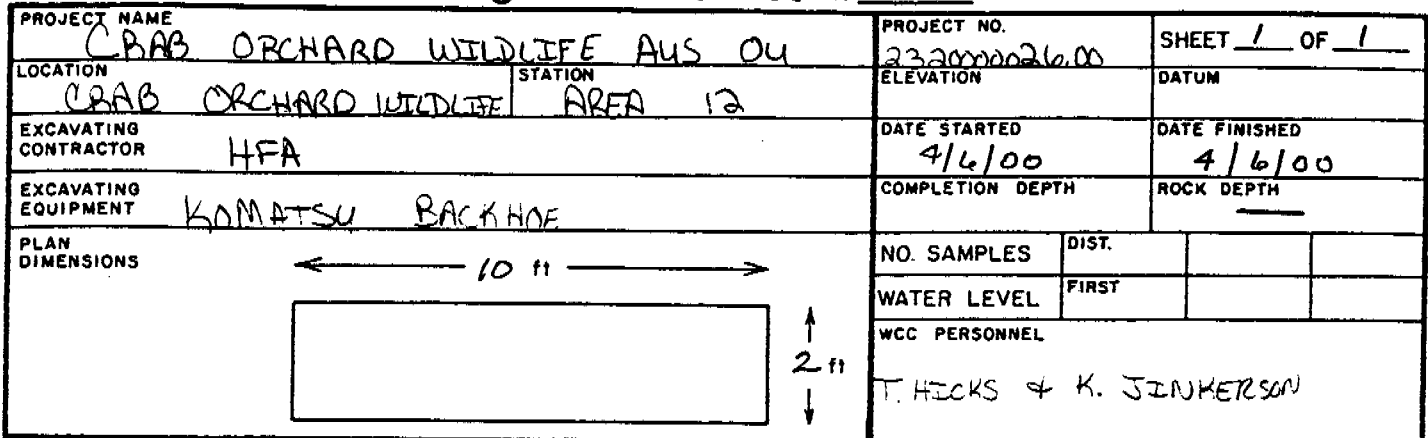 PROJECT NAME
CRAB ORCHARD WILDLIFE AUS OU
PROJECT NO.
2320000026.00
SHEET 1 OF 1
LOCATION
CRAB ORCHARD WILDLIFE
STATION
AREA 12
ELEVATION
DATUM
EXCAVATING
CONTRACTOR
HFA
DATE STARTED
4/6/00
DATE FINISHED
4/6/00
EXCAVATING
EQUIPMENT
KOMATSU BACKHOE
COMPLETION DEPTH
ROCK DEPTH
—
PLAN
DIMENSIONS
10 ft
2 ft
NO. SAMPLES
DIST.
WATER LEVEL
FIRST
WCC PERSONNEL
T. HICKS & K. JINKERSON